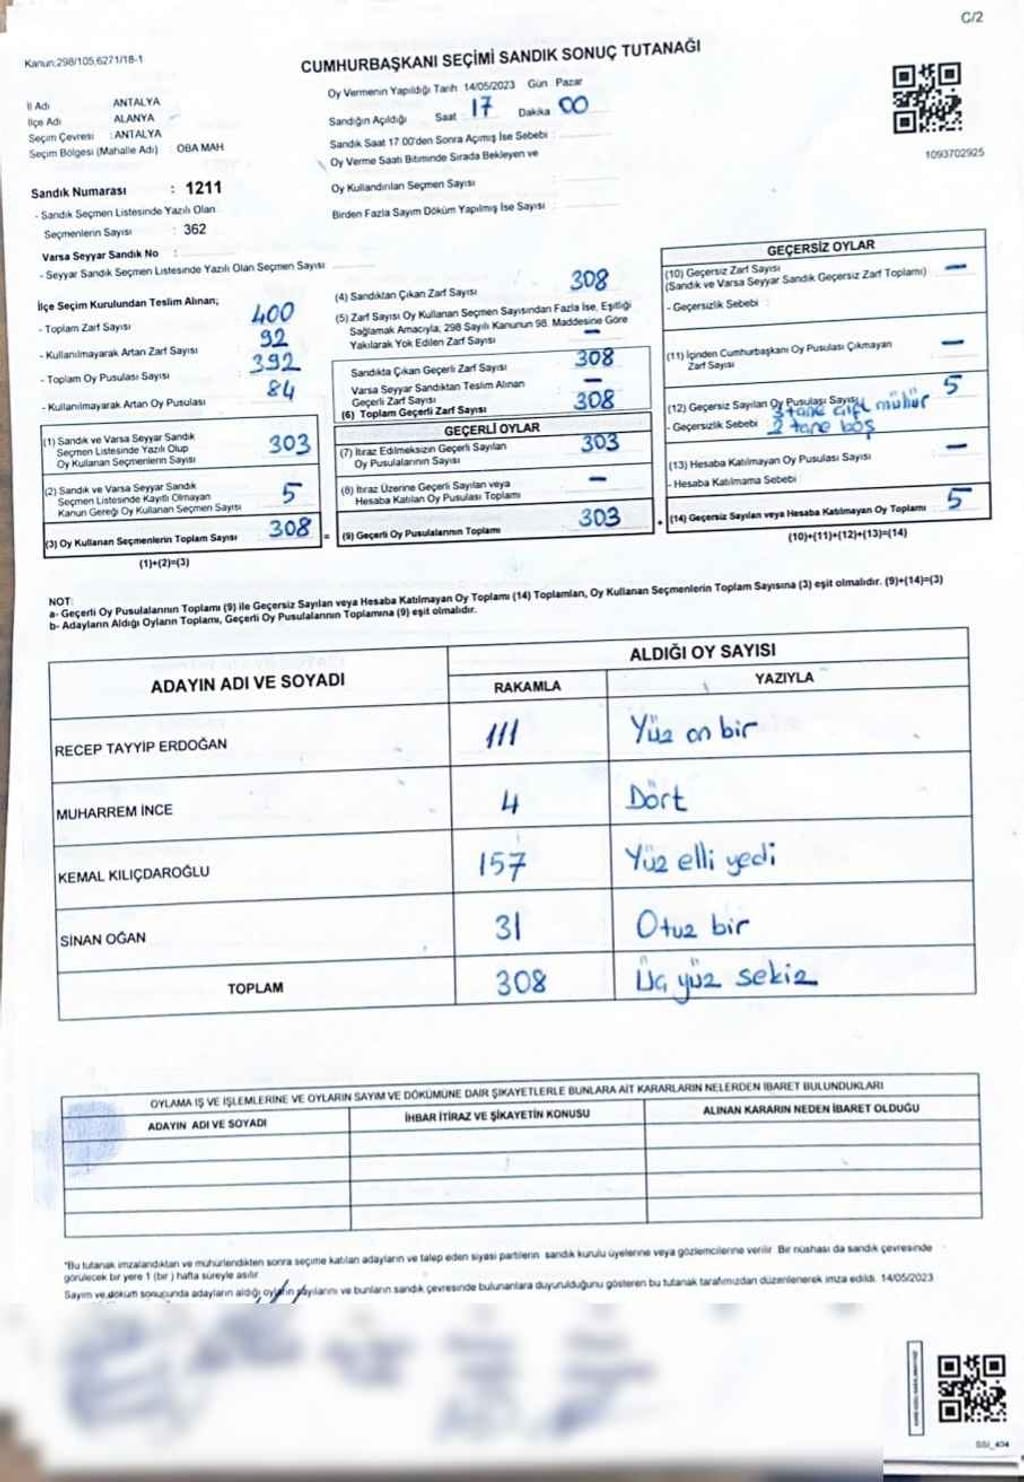 C/2
Kanun:298/105,6271/18-1
CUMHURBAŞKANI SEÇİMİ SANDIK SONUÇ TUTANAĞI
İl Adı ANTALYA
İlçe Adı ALANYA
Seçim Çevresi : ANTALYA
Seçim Bölgesi (Mahalle Adı) : OBA MAH
Sandık Numarası : 1211
- Sandık Seçmen Listesinde Yazılı Olan
Seçmenlerin Sayısı : 362
Varsa Seyyar Sandık No :
- Seyyar Sandık Seçmen Listesinde Yazılı Olan Seçmen Sayısı
Oy Vermenin Yapıldığı Tarih 14/05/2023 Gün Pazar
Sandığın Açıldığı Saat 17 Dakika 00
Sandık Saat 17.00'den Sonra Açımış İse Sebebi :
Oy Verme Saati Bitiminde Sırada Bekleyen ve
Oy Kullandırılan Seçmen Sayısı :
Birden Fazla Sayım Döküm Yapılmış İse Sayısı :
1093702925
İlçe Seçim Kurulundan Teslim Alınan;
- Toplam Zarf Sayısı 400
- Kullanılmayarak Artan Zarf Sayısı 92
- Toplam Oy Pusulası Sayısı 392
- Kullanılmayarak Artan Oy Pusulası 84
(1) Sandık ve Varsa Seyyar Sandık
Seçmen Listesinde Yazılı Olup
Oy Kullanan Seçmenlerin Sayısı 303
(2) Sandık ve Varsa Seyyar Sandık
Seçmen Listesinde Kayıtlı Olmayan
Kanun Gereği Oy Kullanan Seçmen Sayısı 5
(3) Oy Kullanan Seçmenlerin Toplam Sayısı 308 =
(1)+(2)=(3)
(4) Sandıktan Çıkan Zarf Sayısı 308
(5) Zarf Sayısı Oy Kullanan Seçmen Sayısından Fazla İse, Eşitliği
Sağlamak Amacıyla; 298 Sayılı Kanunun 98. Maddesine Göre
Yakılarak Yok Edilen Zarf Sayısı —
Sandıkta Çıkan Geçerli Zarf Sayısı 308
Varsa Seyyar Sandıktan Teslim Alınan
Geçerli Zarf Sayısı —
(6) Toplam Geçerli Zarf Sayısı 308
GEÇERLİ OYLAR
(7) İtiraz Edilmeksizin Geçerli Sayılan
Oy Pusulalarının Sayısı 303
(8) İtiraz Üzerine Geçerli Sayılan veya
Hesaba Katılan Oy Pusulası Toplamı —
(9) Geçerli Oy Pusulalarının Toplamı 303 +
GEÇERSİZ OYLAR
(10) Geçersiz Zarf Sayısı —
(Sandık ve Varsa Seyyar Sandık Geçersiz Zarf Toplamı)
- Geçersizlik Sebebi :
(11) İçinden Cumhurbaşkanı Oy Pusulası Çıkmayan
Zarf Sayısı —
(12) Geçersiz Sayılan Oy Pusulası Sayısı 5
- Geçersizlik Sebebi 3 tane çift mühür
2 tane boş
(13) Hesaba Katılmayan Oy Pusulası Sayısı —
- Hesaba Katılmama Sebebi :
(14) Geçersiz Sayılan veya Hesaba Katılmayan Oy Toplamı 5
(10)+(11)+(12)+(13)=(14)
NOT:
a- Geçerli Oy Pusulalarının Toplamı (9) ile Geçersiz Sayılan veya Hesaba Katılmayan Oy Toplamı (14) Toplamları, Oy Kullanan Seçmenlerin Toplam Sayısına (3) eşit olmalıdır. (9)+(14)=(3)
b- Adayların Aldığı Oyların Toplamı, Geçerli Oy Pusulalarının Toplamına (9) eşit olmalıdır.
ADAYIN ADI VE SOYADI ALDIĞI OY SAYISI
RAKAMLA YAZIYLA
RECEP TAYYİP ERDOĞAN 111 Yüz on bir
MUHARREM İNCE 4 Dört
KEMAL KILIÇDAROĞLU 157 Yüz elli yedi
SİNAN OĞAN 31 Otuz bir
TOPLAM 308 Üç yüz sekiz
OYLAMA İŞ VE İŞLEMLERİNE VE OYLARIN SAYIM VE DÖKÜMÜNE DAİR ŞİKAYETLERLE BUNLARA AİT KARARLARIN NELERDEN İBARET BULUNDUKLARI
ADAYIN ADI VE SOYADI İHBAR İTİRAZ VE ŞİKAYETİN KONUSU ALINAN KARARIN NEDEN İBARET OLDUĞU
*Bu tutanak imzalandıktan ve mühürlendikten sonra seçime katılan adayların ve talep eden siyasi partilerin sandık kurulu üyelerine veya gözlemcilerine verilir. Bir nüshası da sandık çevresinde
görülecek bir yere 1 (bir) hafta süreyle asılır.
Sayım ve döküm sonucunda adayların aldığı oyların sayılarını ve bunların sandık çevresinde bulunanlara duyurulduğunu gösteren bu tutanak tarafımızdan düzenlenerek imza edildi. 14/05/2023